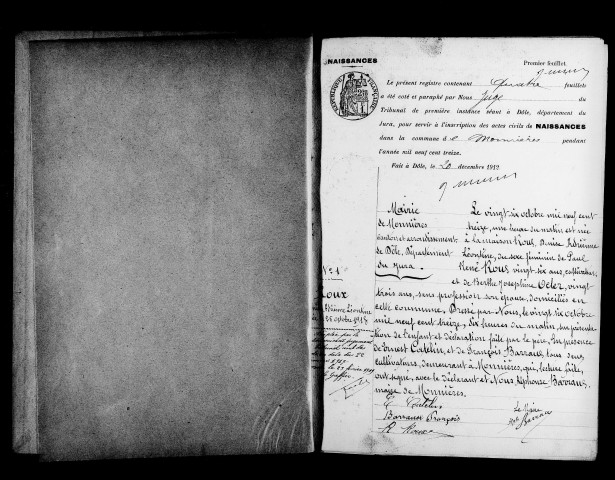 NAISSANCES
Premier feuillet.
Le présent registre contenant quatre feuillets
a été coté et paraphé par Nous Juge du
Tribunal de première instance séant à Dôle, département du
Jura, pour servir à l'inscription des actes civils de NAISSANCES
dans la commune de Monnières pendant
l'année mil neuf cent treize.
Fait à Dôle, le 20 décembre 1912
RÉPUBLIQUE FRANÇAISE
Mairie
de Monnières
Canton et arrondissement
de Dôle, Département
du Jura.
N° 1
Roux
26 octobre 1913
Le vingt six octobre mil neuf cent
treize, une heure du matin, est née
à la maison Roux, Denise Adrienne
Léontine, du sexe féminin de Paul
René Roux vingt six ans, cultivateur,
et de Berthe Joséphine Oeler, vingt
trois ans, sans profession son épouse, domiciliés en
cette commune. Dressé par Nous, le vingt six octobre
mil neuf cent treize, six heures du matin sur présenta-
tion de l'enfant et déclaration faite par le père, en présence
de Ernest Catelin, et de François Barraux tous deux
cultivateurs, demeurant à Monnières, qui, lecture faite,
ont signé, avec le déclarant et Nous, Alphonse Barraux
maire de Monnières.
E. Catelin
Barraux François
R Roux
Le Maire
Barraux